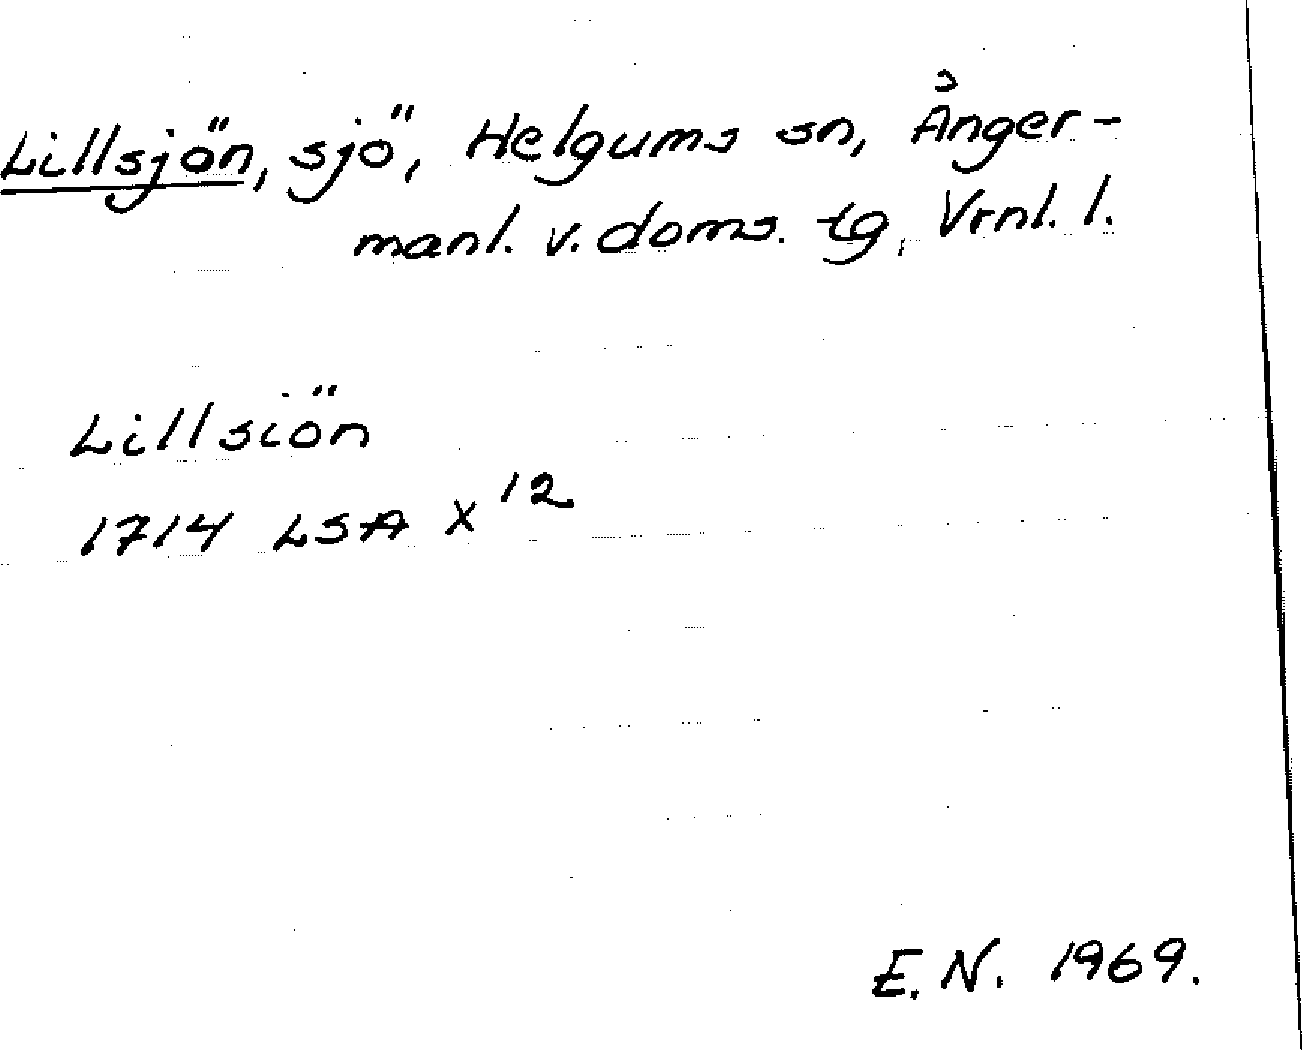 Lillsjön, sjö, Helgums sn, Ånger-
manl. v. doms. tg, Vrnl. l.
Lillsiön
1714 LSA X¹²
E.N. 1969.